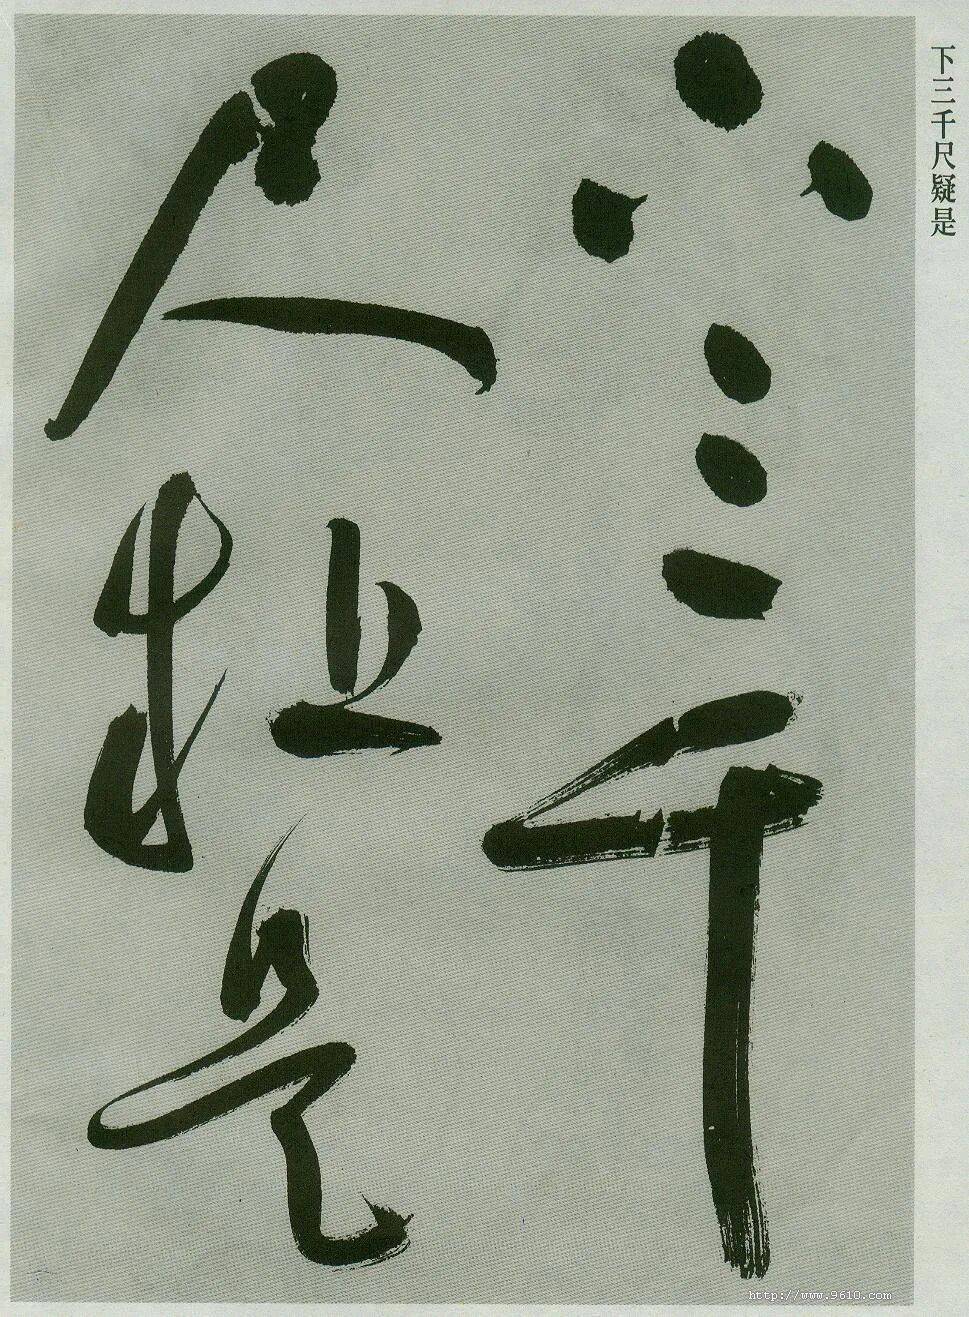 下三千
尺疑是
下三千尺疑是
http://www.9610.com